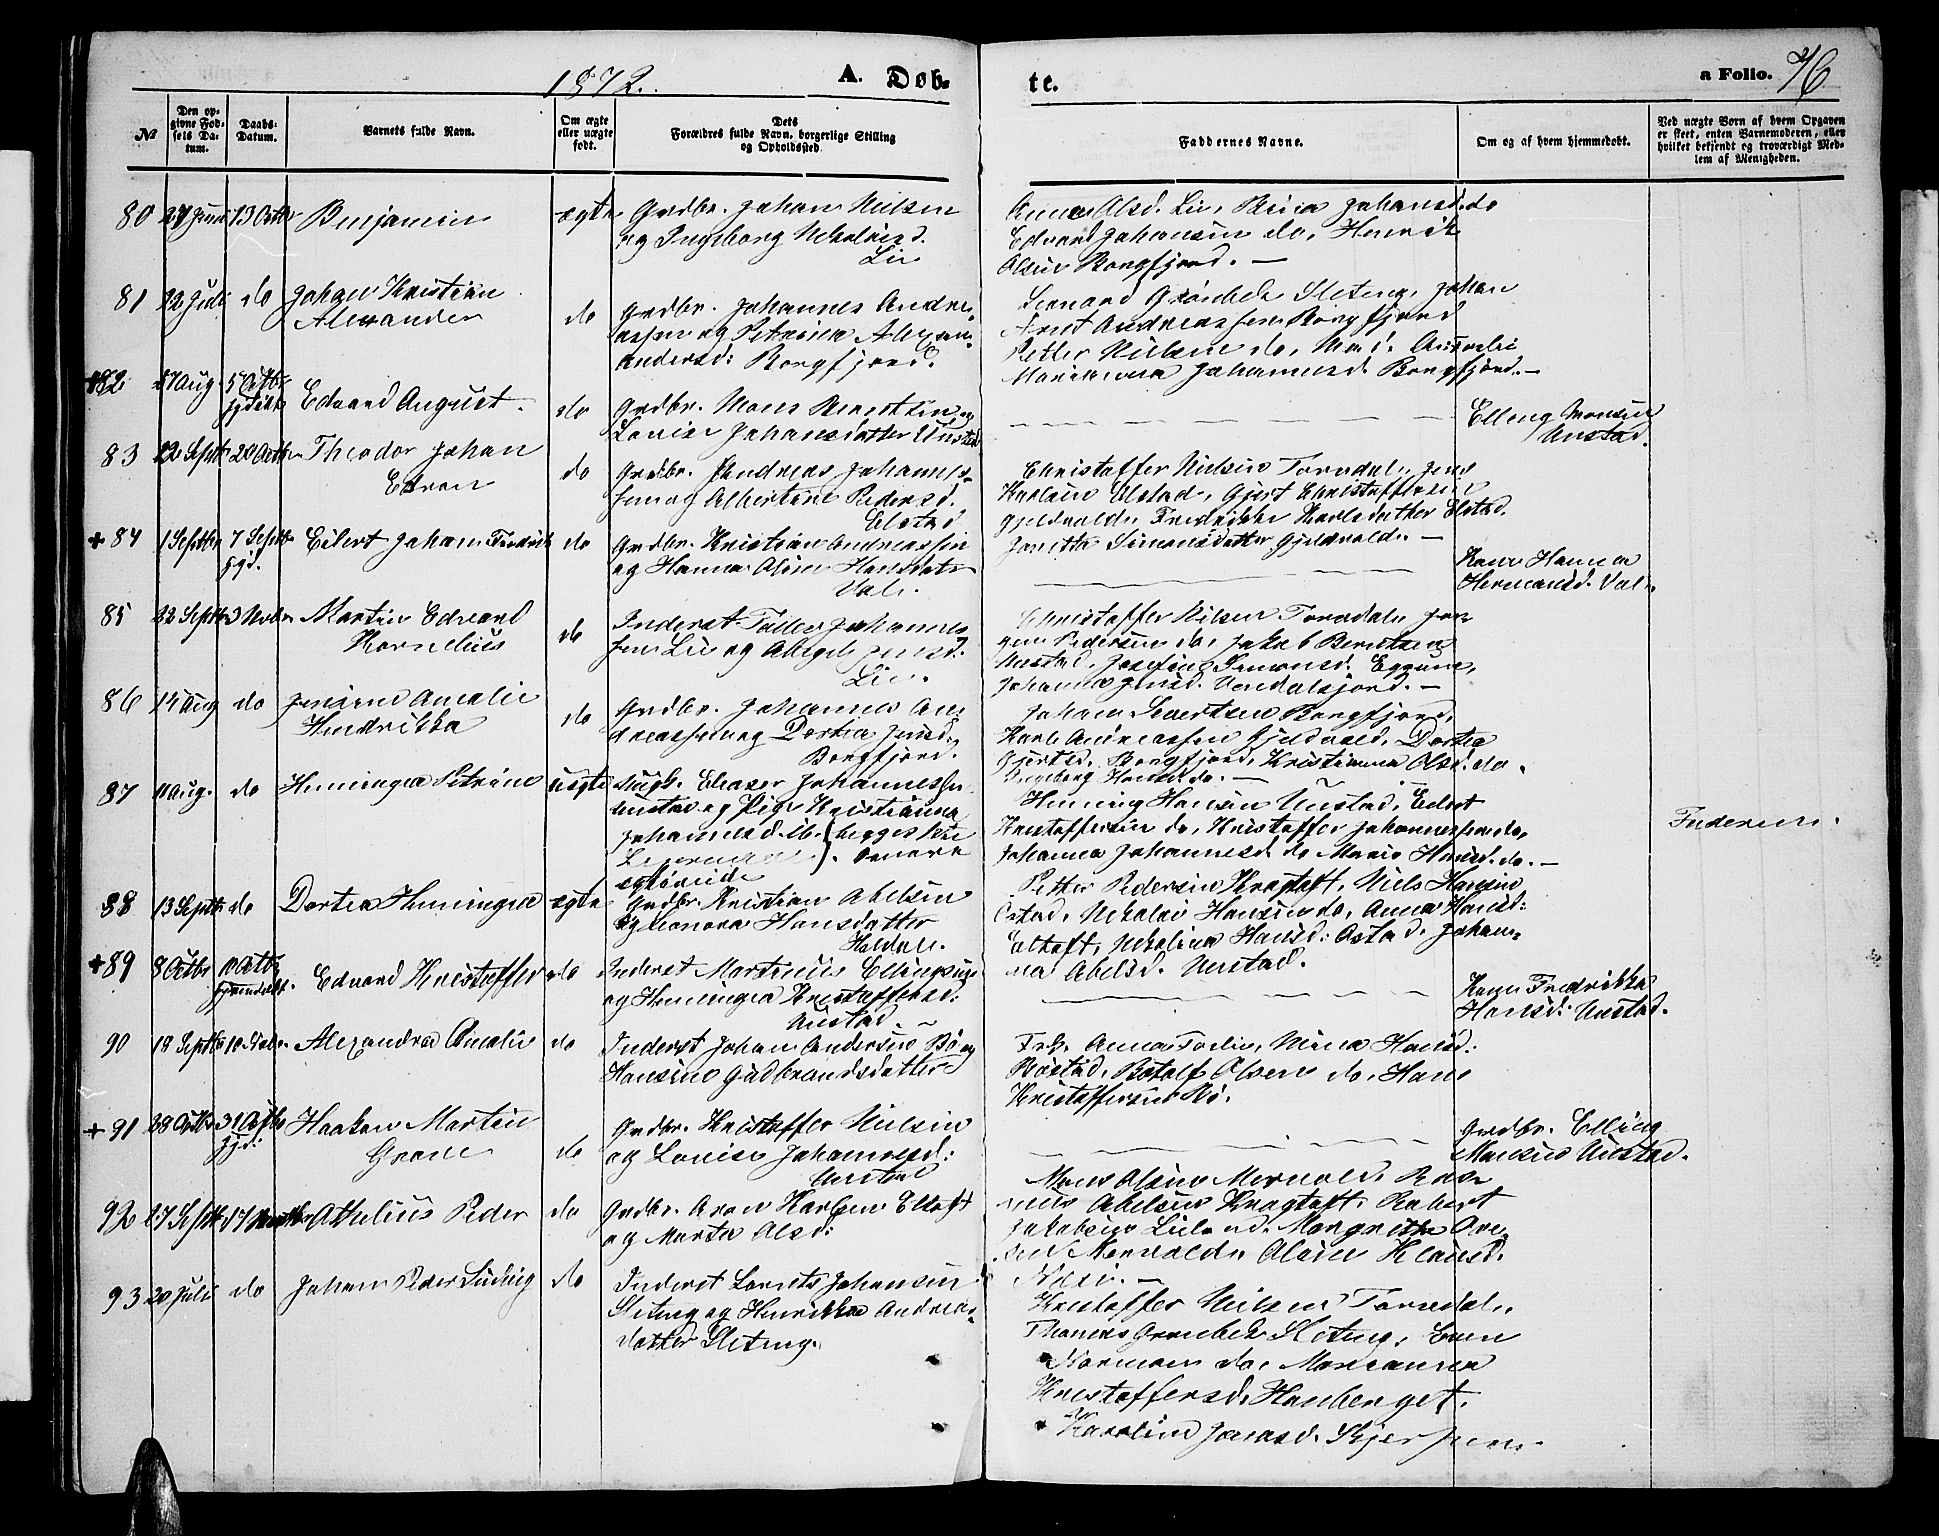 1872. A. Døb-
te. a Folio. 76
№
Den op-
givne Fød-
sels Da-
tum.
Daabs-
Datum.
Barnets fulde Navn.
Om ægte
eller uægte
født.
Dets
Forældres fulde Navn, borgerlige Stilling
og Opholdssted.
Faddernes Navne.
Om og af hvem hjemmedøbt.
Ved uægte Børn af hvem Opgaven
er skeet, enten Barnemoderen, eller
hvilket bekjendt og troværdigt Med-
lem af Menigheden.
80 27 Juni 13 Octbr Benjamin ægte Grdbr. Johan Nilsen
og Ingeborg Nikolaisd.
Lie
Anna Olsd. Lie, Johansd. do
Edvard Johansen do, Henrik
Olsen Borgfjord. —
81 22 Juli do Johan Kristian
Alexander
do Grdbr. Johannes Andre-
assen og Petrina Alexsan-
andersd: Borgfjord.
Leonard Grønbek Sletteng, Johan
Arnt Andreassen Borgfjord
Petter Nilsen do,
Johannesd. Borgfjord. —
+82 27 Aug 5 Octbr
hjdøbt
Edvard August. do Grdbr. Mons Berntsen og
Louise Johansdatter Unstad
Elling Monsen
Unstad.
83 22 Septbr 20 Octbr Theodor Johan
Edvan
do Grdbr. Andreas Johannes-
sen og Albertine Pedersd.
Elstad
Christoffer Nielsen Torvdal, Jens
Karlsen Elstad, Gjert Christoffersen
Gjeldvold, Fredrikke Karlsdatter Elstad,
Janitta Simonsdatter Gjeldvold. —
+84 1 Septbr 7 Septbr
hjd.
Eilert Johan Fredrik do Grdbr. Kristian Andreassen
og Hanna Oline Hansdatr
Val.
Kone Hanna
Hermansd. Val.
85 22 Septbr 3 Novbr Martin Edvard
Kornelius
do Inderst Tollev Johannes
sen Lie og Abigel Jensd:
Lie.
Christoffer Nilsen Torvdal, Jør-
gen Pedersen do, Jakob Berntsen
Unstad, Josefine Simonsd. Eggum,
Johanna Jensd. Vendalsjord. —
86 14 Aug do Jensine Amalie
Hendrikka
do Grdbr. Johannes An-
dreassen og Dortea Jensd.
Borgfjord.
Johan Sivertsen Borgfjord,
Karl Andreassen Gjeldvold, Dortea
Gjertsd. Borgfjord, Kristianna Olsd. do,
Ingeborg Hansd. do. —
87 11 Aug. do Henningea Petrine uægte Ungk. Eliaser Johannessen
Unstad og Pige Kristianna
Johannesd. ib. begges 1ste
Leiermaal
Henning Hansen Unstad, Eilert
Kristoffersen do, Kristoffer Johannessen do,
Johanna Johannesd. do Marie Hansd. do. —
Faderen.
88 13 Septbr do Dortea Henningea ægte Grdbr. Kristian Abelsen
og Leonora Hansdatter
Haldal.
Petter Pedersen Kragtoft, Niels Hansen
Ostad, Nikolai Hansen do, Anna Hansd:
Eltoft, Nikolina Hansd: Ostad, Johan-
na Abelsd. Unstad.
+89 8 Octbr 10 Octbr
hjemmedøbt.
Edvard Kristoffer do Inderst Martinus Ellingsen
og Henningea Kristoffersd:
Unstad.
Kone Fredrikka
Hansd: Unstad.
90 18 Septbr 10 Novbr Alexandra Amalie do Inderst Johan Andersen Bø og
Hansine Gudbrandsdatter
Frk. Anna Torlie, Nina Hansd:
Bøstad, Botolf Olsen do, Hans
Kristoffersen Bø.
+91 28 Octbr 31 Octbr
hjd:
Haakon Martin
Grove
do Grdbr. Kristoffer Nilsen
og Louise Johannesd:
Unstad
Grdbr. Elling
Monsen Unstad.
92 27 Septbr 17 Novbr Athelius Peder do Grdbr. Aron Karlsen Eltoft
og Marta Olsd:
Mons Olsen Mervold, Ras-
mus Abelsen Kragtoft, Robert
Jakobsen Lieland, Margrethe Are-
sen Mervold, Oline Klausd.
93 20 Juli do Johan Peder Ludvig do Inderst Lorents Johansen
Sleteng og Henrikka Andreas-
datter Sleteng.
Kristoffer Nilsen Torvdal,
Thomas Grønbek Sleteng, Even
Normann do, Marianna
Kristoffersd. Hauberget.
Karoline Jonasd.